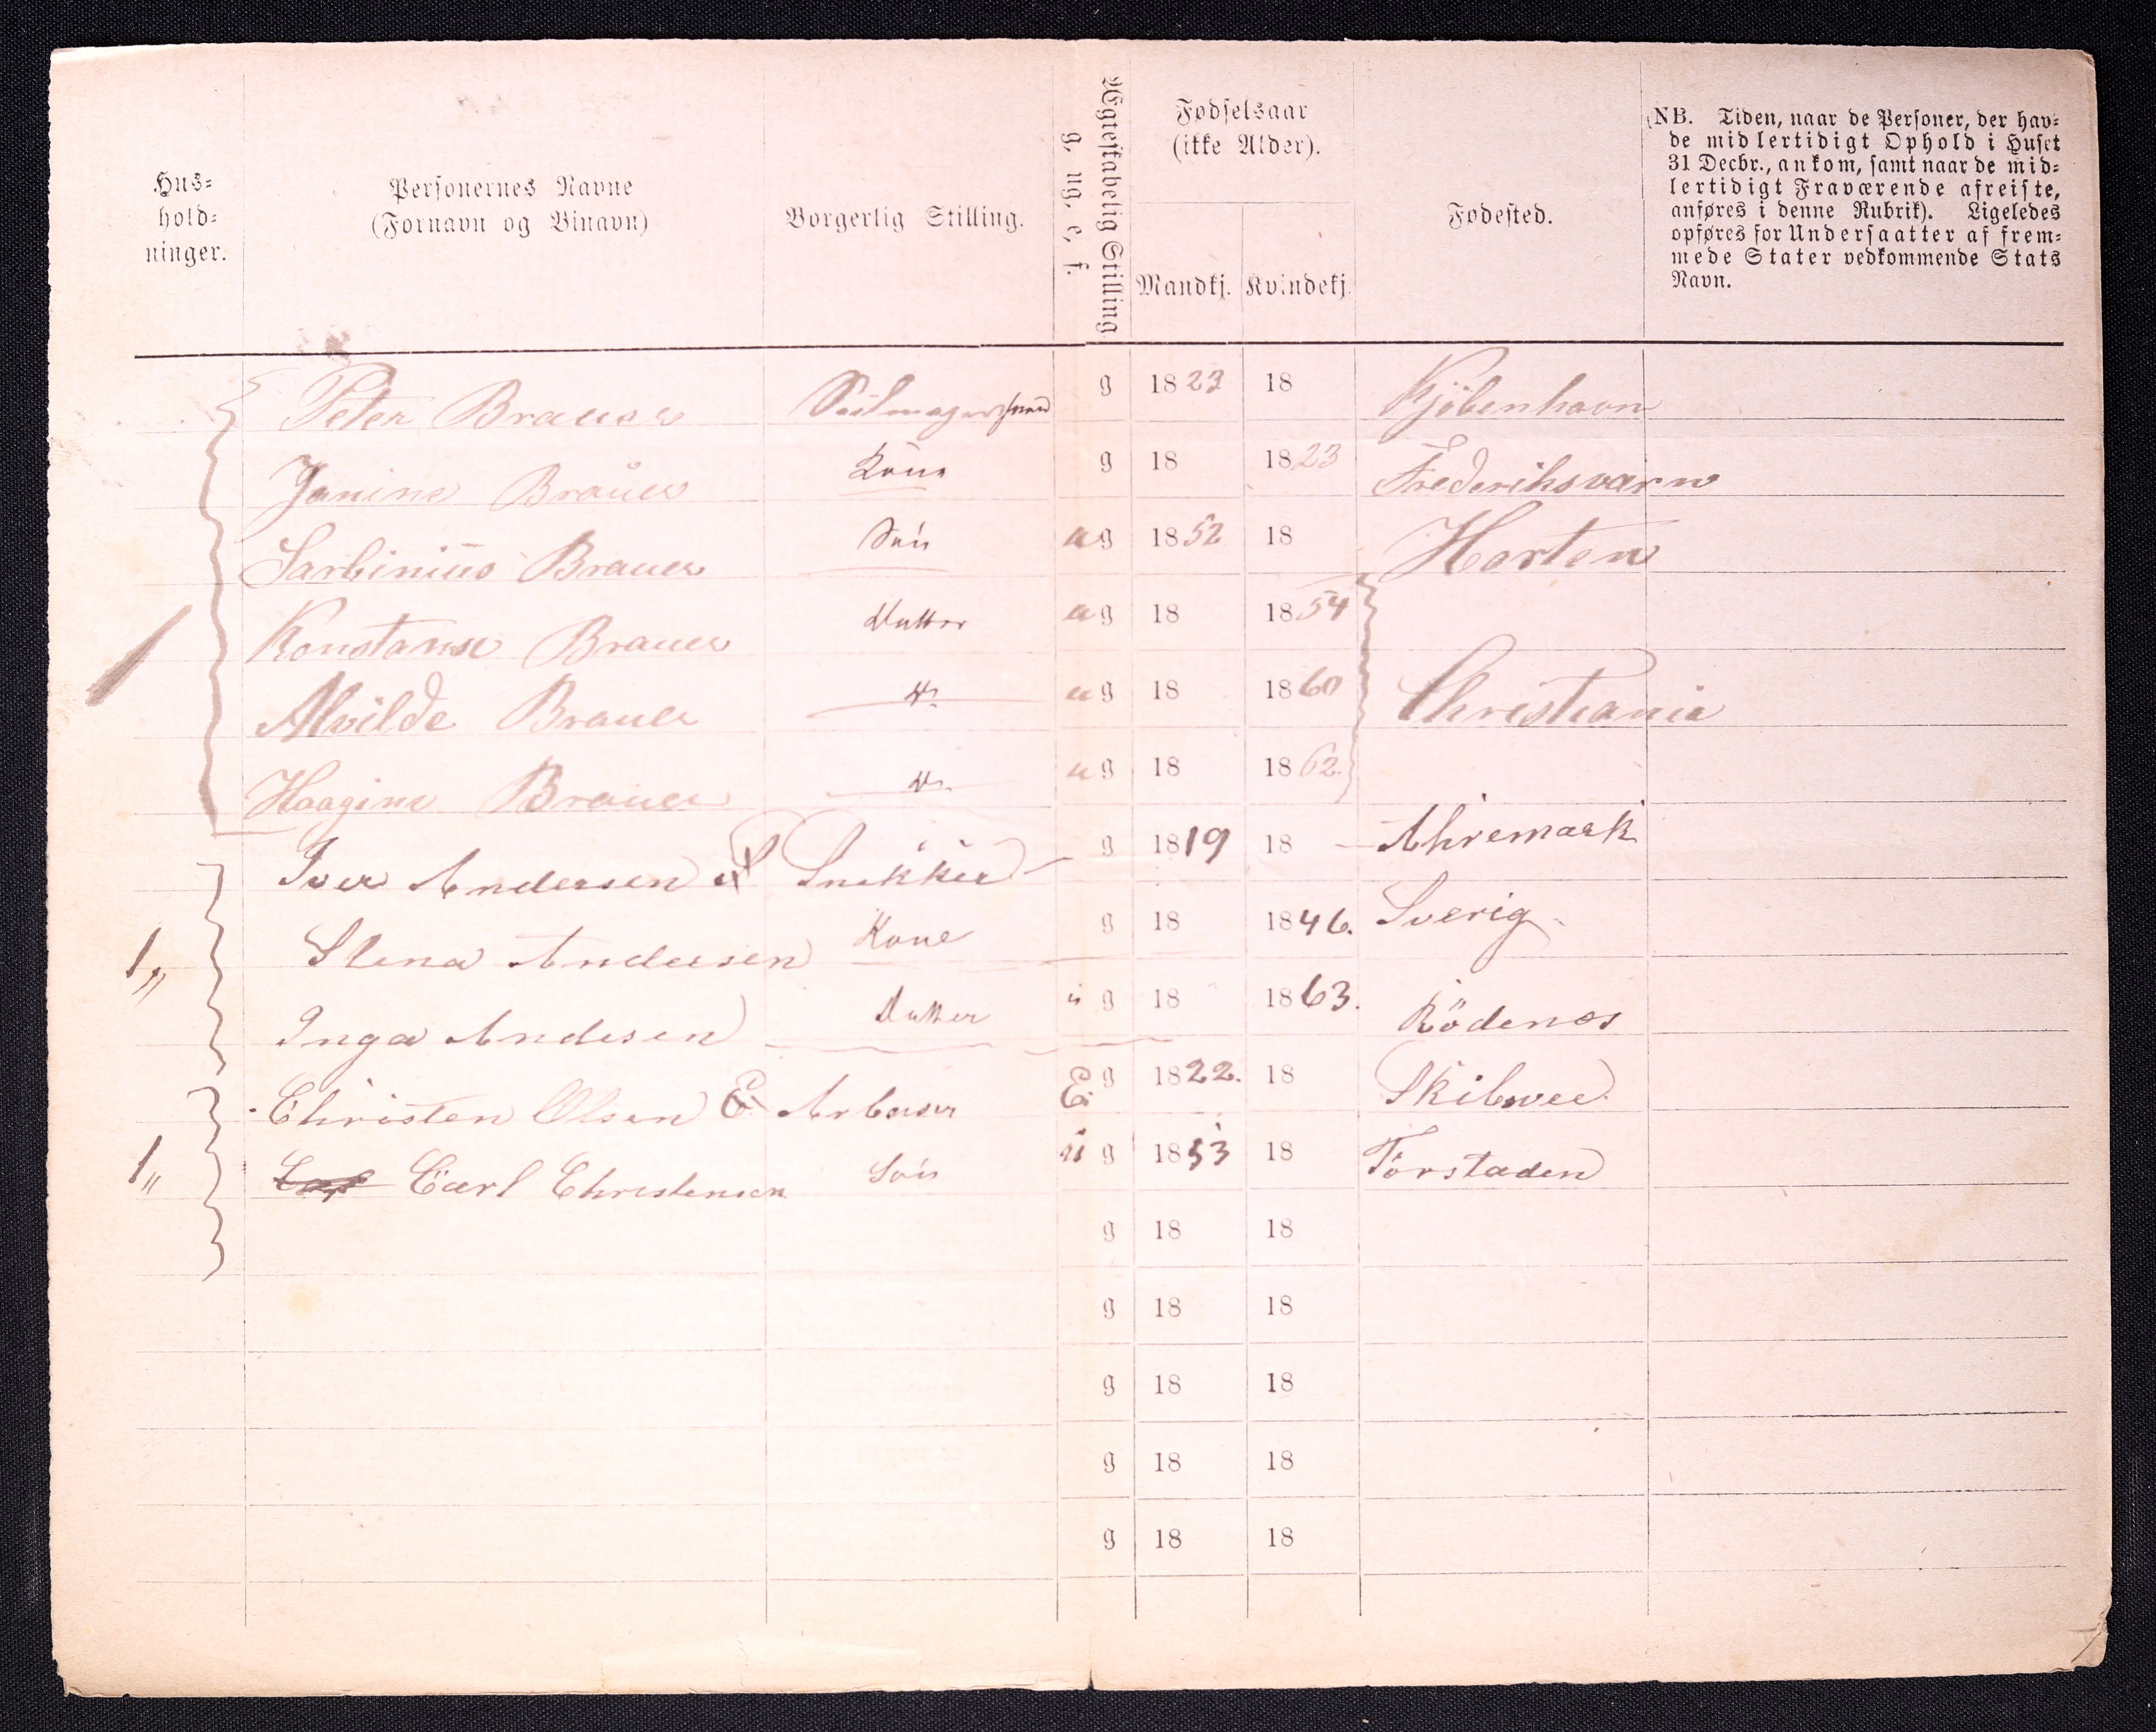 Hus-
hold-
ninger.
Personernes Navne
(Fornavn og Binavn)
Borgerlig Stilling.
Ægteskabelig Stilling
g, ug, e, f.
Fødselsaar
(ikke Alder).
Mandkj. Kvindekj.
Fødested.
(NB. Tiden, naar de Personer, der hav-
de midlertidigt Ophold i Huset
31 Decbr., ankom, samt naar de mid-
lertidigt Fraværende afreiste,
anføres i denne Rubrik). Ligeledes
opføres for Undersaatter af frem-
mede Stater vedkommende Stats
Navn.
Peter Brauer Seilmagersvend g 1823 18 Kjöbenhavn
Janine Brauer Kone g 18 1823 Frederiksværn
Sarbinius Brauer Sön ug 1852 18 Horten
Konstanse Brauer Datter ug 18 1854
Alvilde Brauer D. ug 18 1860 Christiania
Haagine Brauer D. ug 18 1862
Iver Andersen Snekker g 1819 18 Ahremark
1 Stena Andersen Kone g 18 1846. Sverig
Inga Andesen Datter u g 18 1863. Rödenæs
Christen Olsen E Arbeider E g 1822. 18
1 Carl Christensen Sön u g 1853 18 Torstaden
g 18 18
g 18 18
g 18 18
g 18 18
g 18 18